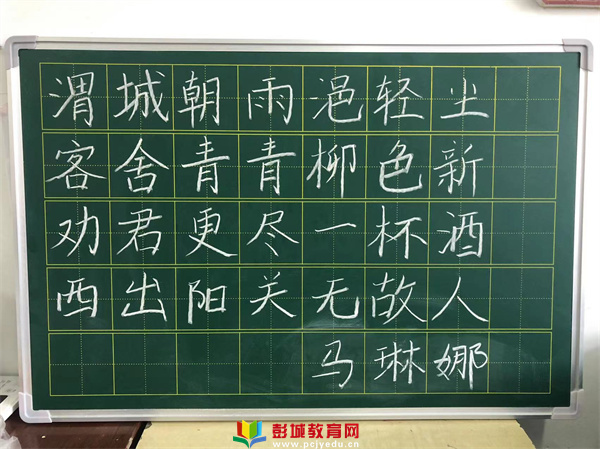 渭城朝雨浥轻尘
客舍青青柳色新
劝君更尽一杯酒
西出阳关无故人
马琳娜
彭城教育网
www.pcjyedu.cn